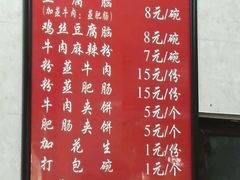 豆腐脑
(加蒸牛肉;蒸肥肠) 8元/碗
鸡丝豆腐脑 8元/碗
牛肉麻辣粉 7元/碗
粉蒸牛肉 15元/份
粉蒸肥肠 15元/份
牛肉夹饼 5元/个
肥肠夹饼 5元/个
加花生 1元/份
打包碗 1元/个